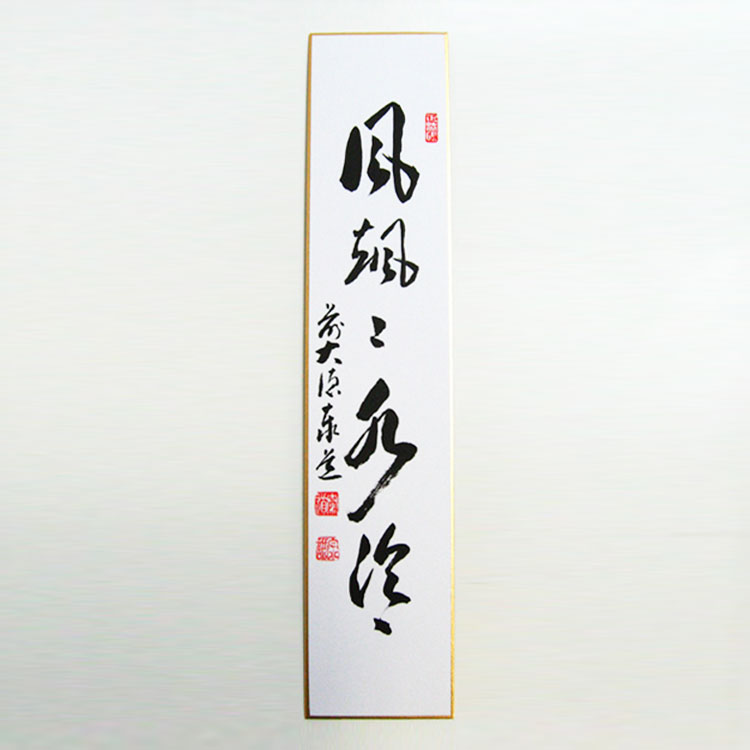 風颯々水冷々
前大徳泰道